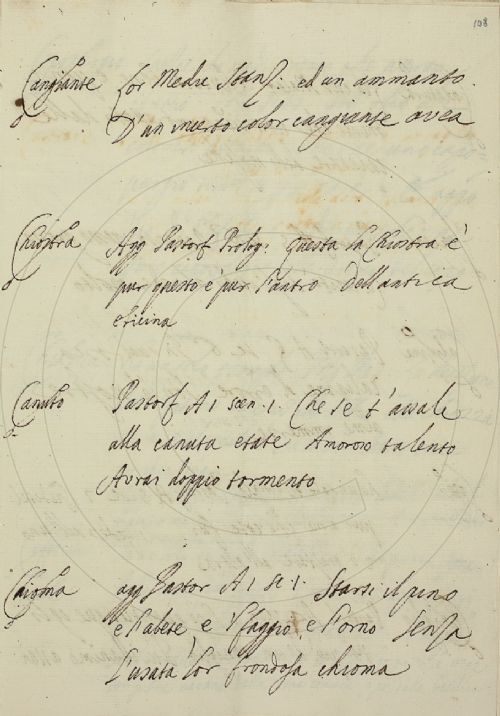 108
Cangiante Lor Medic Stanz: ed un ammanto.
D'un incerto color cangiante avea
Chiostra Agg Pastorf Prolog: Questa la Chiostra è
pur questo è pur l'antro Dell'antica
ericina
Canuto Pastorf A 1 scen. 1. Che se t'assale
alla canuta etate Amoroso talento
Avrai doppio tormento
Chioma agg Pastor A 1 sc. 1. Starsi il pino
e l'abete, e 'l faggio, e l'orno Senza
l'usata lor frondosa chioma